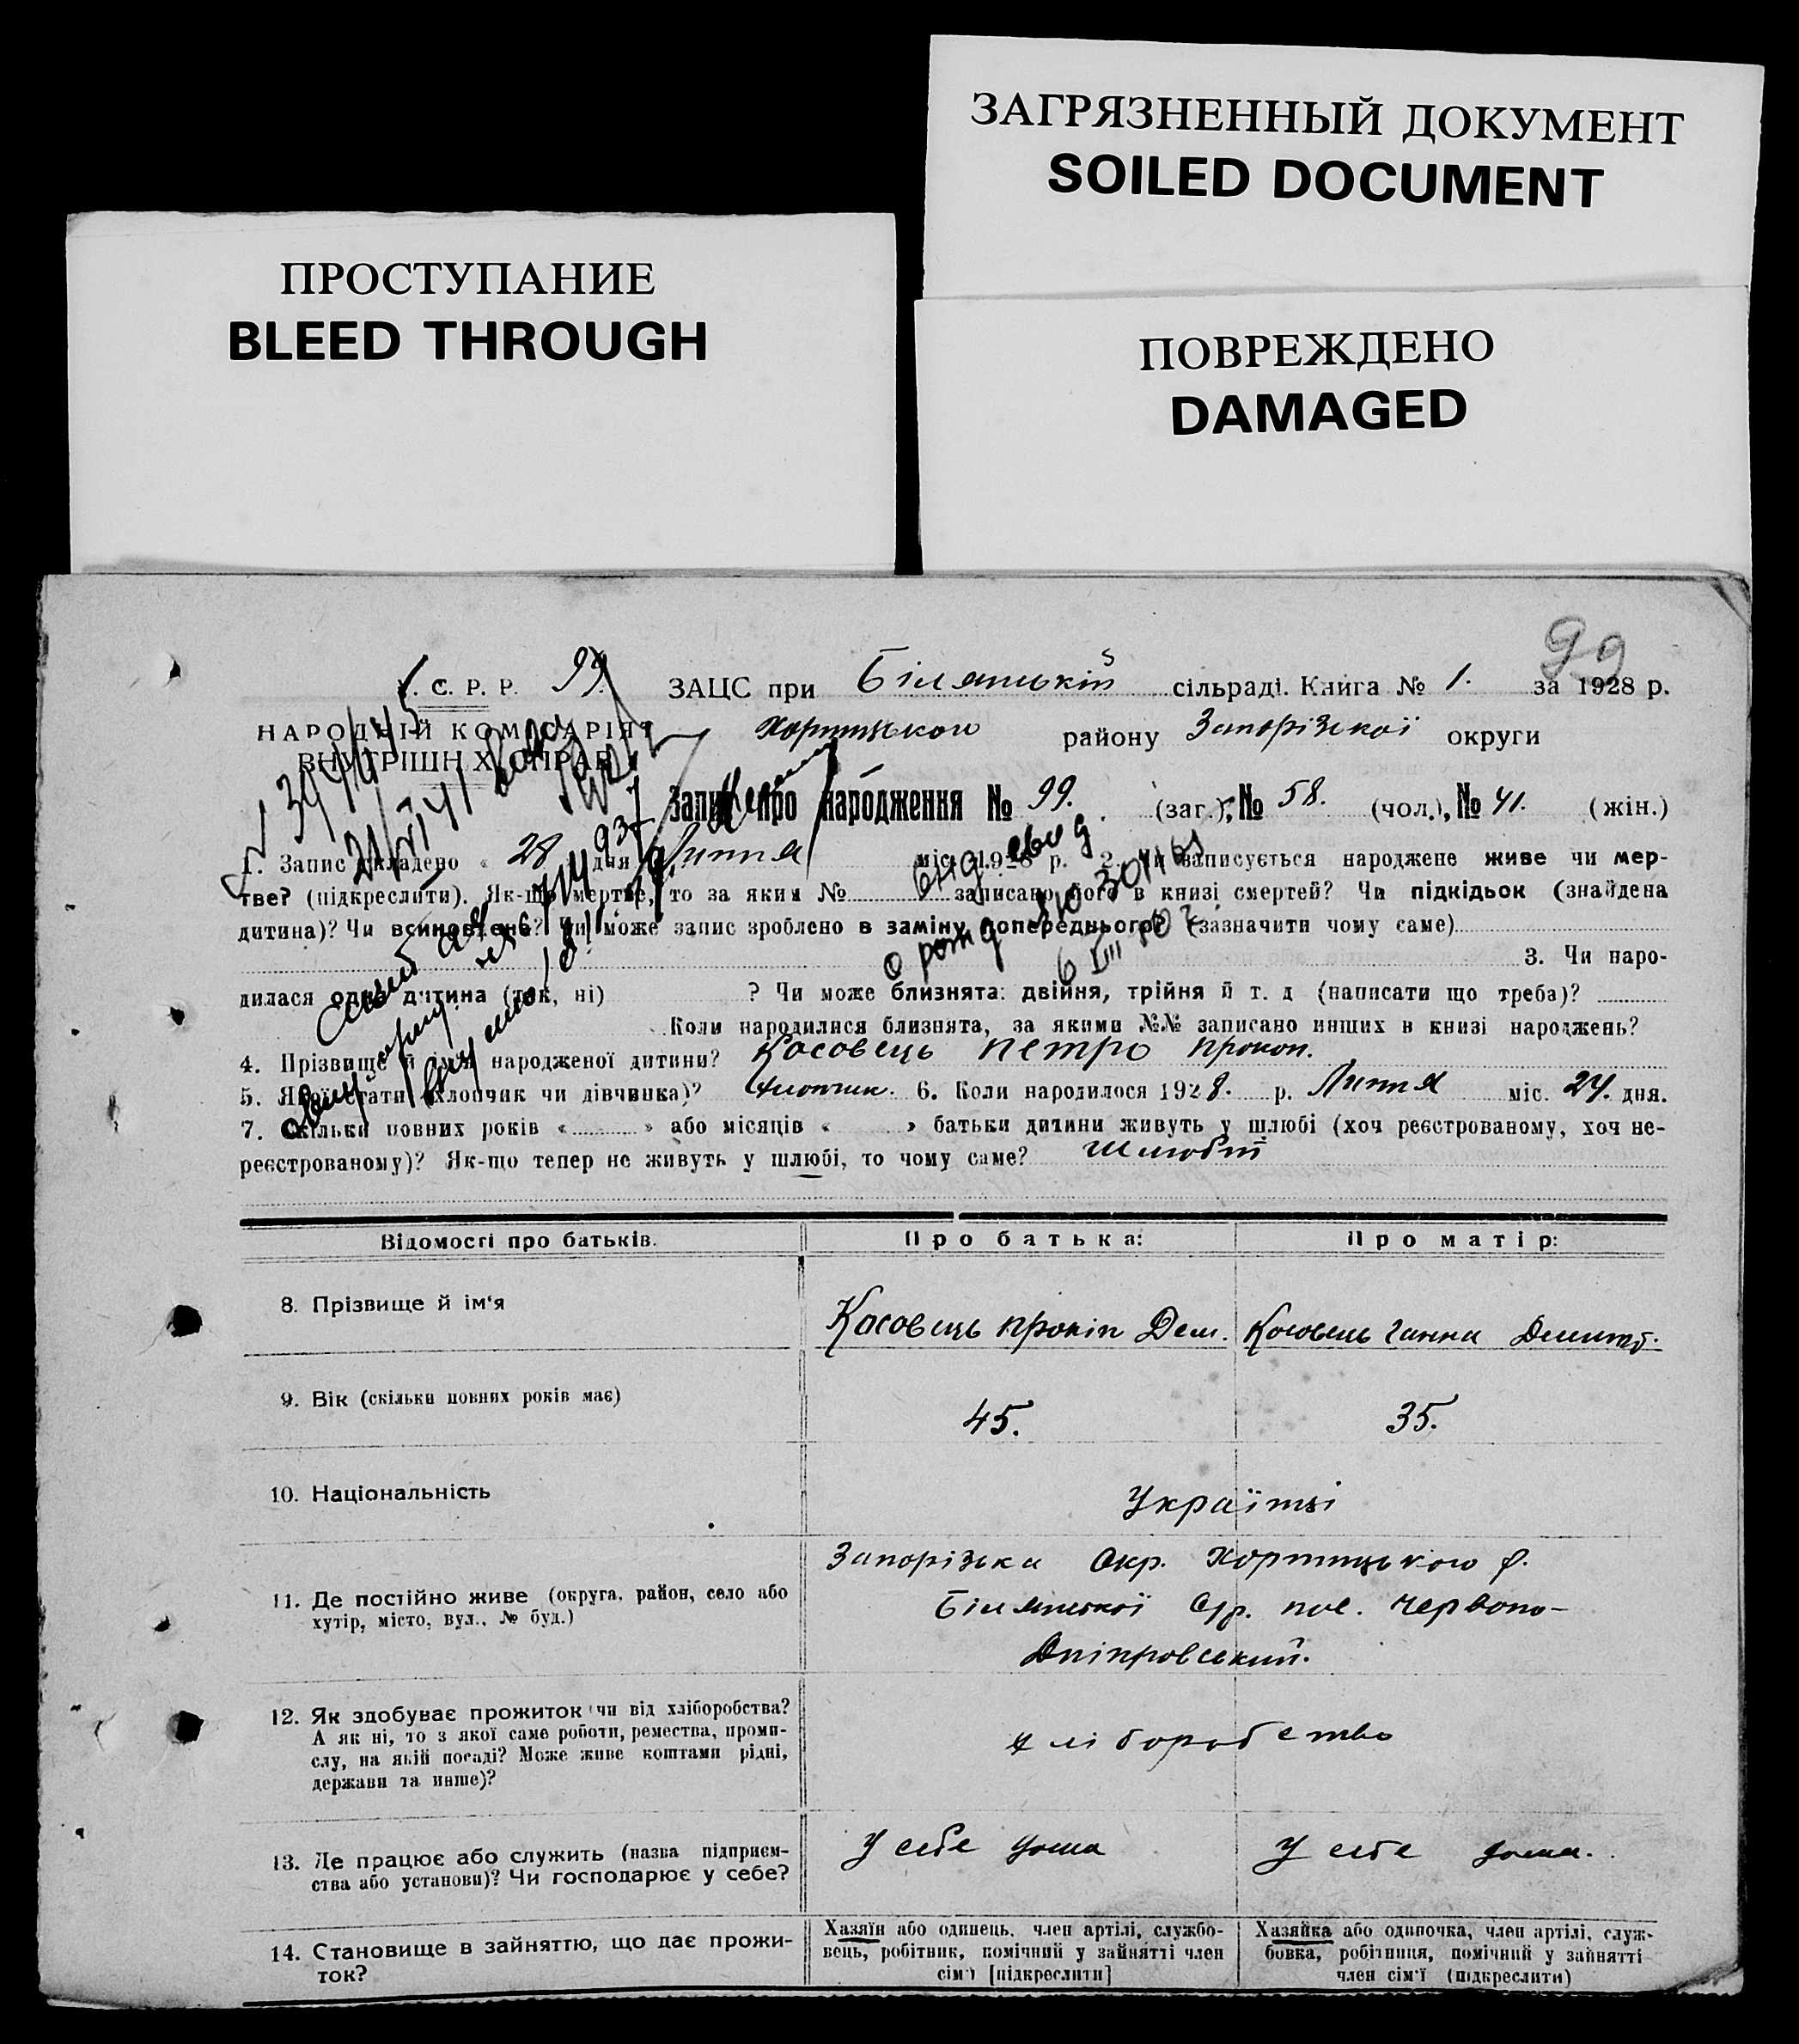 ЗАГРЯЗНЕННЫЙ ДОКУМЕНТ
SOILED DOCUMENT
ПРОСТУПАНИЕ
BLEED THROUGH
ПОВРЕЖДЕНО
DAMAGED
99
У. С. Р. Р. 99. ЗАЦС при Білянській сільраді. Книга № 1. за 1928 р.
НАРОДНІЙ КОМІСАРІЯТ Хортицького району Запорізької округи
ВНУТРІШНІХ СПРАВ
Запис про народження № 99. (заг.), № 58. (чол.), № 41. (жін.)
1. Запис складено « 28 дня Липня міс. 1928 р. 2. Чи записується народжене живе чи мер-
тве? (підкреслити). Як-що мертве, то за яким № записано його в книзі смертей? Чи підкідьок (знайдена
дитина)? Чи всиновлене? Чи може запис зроблено в заміну попереднього? (зазначити чому саме)
3. Чи наро-
дилася одна дитина (так, ні) ? Чи може близнята: двійня, трійня й т. д (написати що треба)?
Коли народилися близнята, за якими №№ записано инших в книзі народжень?
4. Прізвище й ім'я народженої дитини? Косовець Петро Прокоп.
5. Якої стати (хлопчик чи дівчинка)? Хлопчик. 6. Коли народилося 1928. р. Липня міс. 24. дня.
7. Скільки повних років « » або місяців « » батьки дитини живуть у шлюбі (хоч реєстрованому, хоч не-
реєстрованому)? Як-що тепер не живуть у шлюбі, то чому саме?
Відомості про батьків. Про батька: Про матір:
8. Прізвище й ім'я Косовець Прокіп Дем. Косовець Ганна
9. Вік (скільки повних років має) 45. 35.
10. Національність Українці
11. Де постійно живе (округа, район, село або
хутір, місто, вул., № буд.)
Запорізька Окр. Хортицького р.
Білянської С/р. пос. Червоно-
Дніпровський.
12. Як здобуває прожиток (чи від хліборобства?
А як ні, то з якої саме роботи, ремества, проми-
слу, на якій посаді? Може живе коштами рідні,
держави та инше)?
Хліборобство
13. Де працює або служить (назва підприєм-
ства або установи)? Чи господарює у себе?
У себе дома У себе дома.
14. Становище в зайняттю, що дає прожи-
ток?
Хазяїн або одинець, член артілі, службо-
вець, робітник, помічний у зайнятті член
сім'ї [підкреслити]
Хазяйка або одиночка, член артілі, служ-
бовка, робітниця, помічний у зайнятті
член сім'ї (підкреслити)